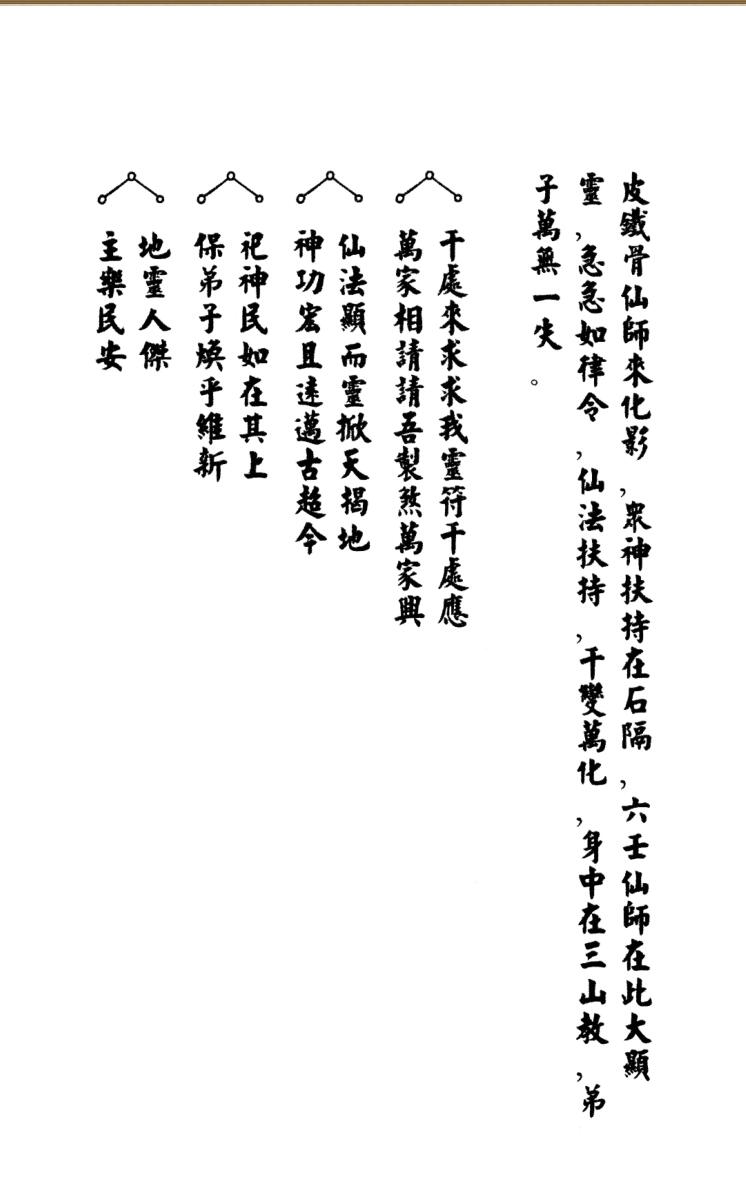 皮鐵骨仙師來化影，衆神扶持在石隔，六壬仙師在此大顯
靈，急急如律令，仙法扶持，千變萬化，身中在三山教，弟
子萬無一失。
千處來求求我靈符千處應
萬家相請請吾製煞萬家興
仙法顯而靈掀天揭地
神功宏且遠邁古超今
祀神民如在其上
保弟子煥乎維新
地靈人傑
主樂民安